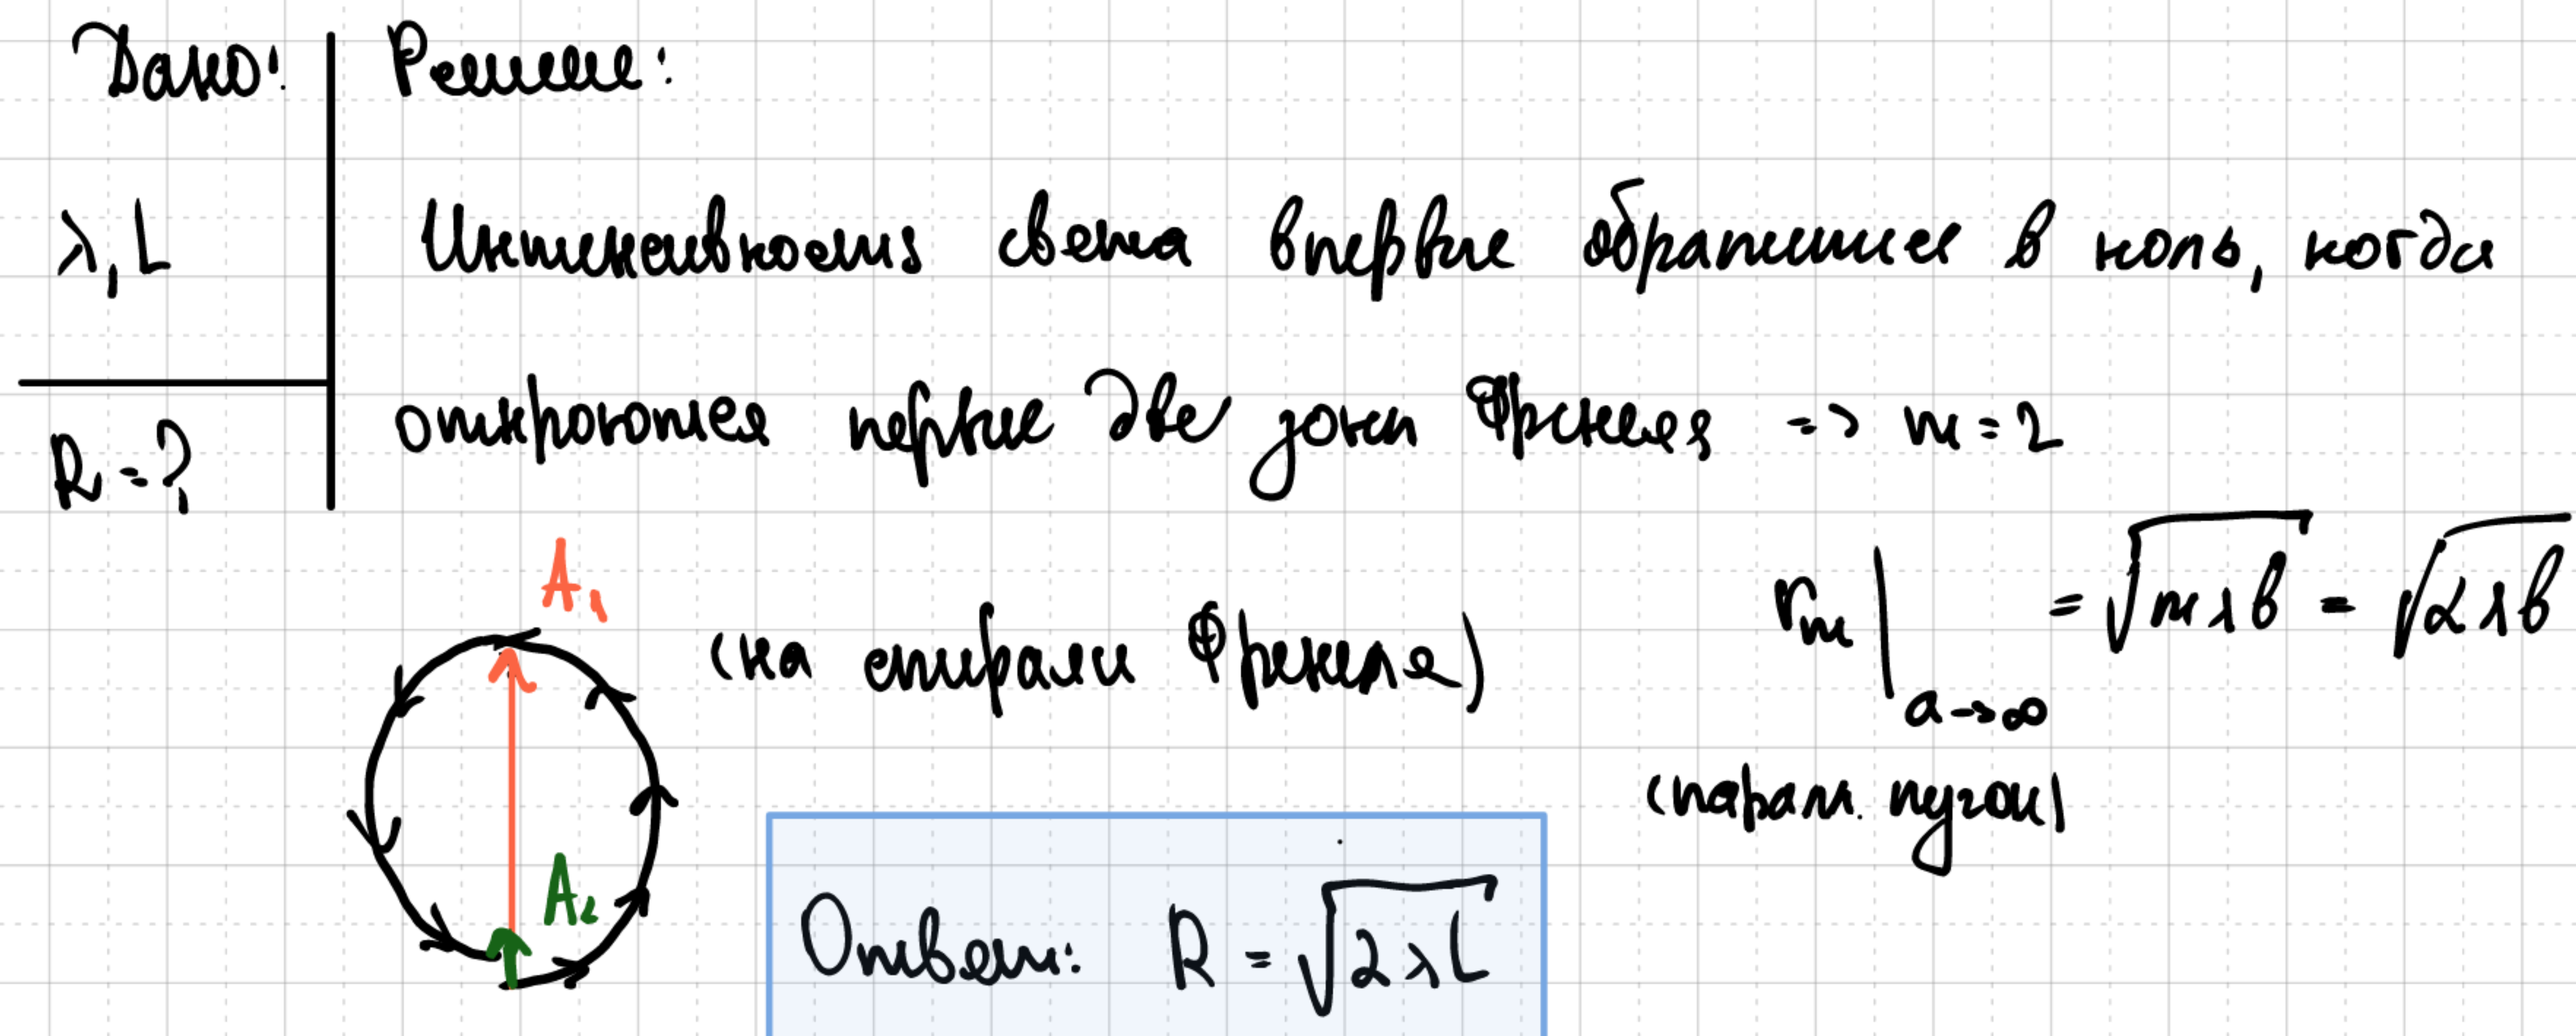 Дано: Решение:
λ, L
Интенсивность света впервые обратится в ноль, когда
откроются первые две зоны Френеля => m = 2
R = ?
A₁
(на спирали Френеля)
rₘ |ₐ→∞ = √mλb = √2λb
(паралл. пучок)
A₂
Ответ: R = √2λL